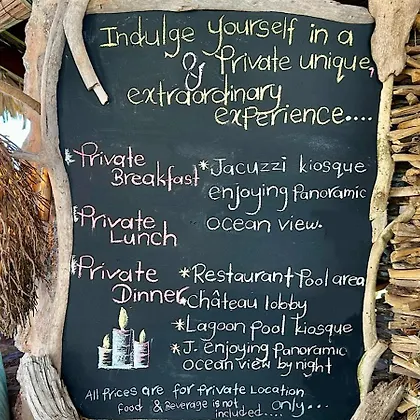 Indulge yourself in a
& Private unique,
extraordinary
experience....
*Private
Breakfast
*Jacuzzi kiosque
enjoying Panoramic
ocean view.
*Private
Lunch
*Private
Dinner
*Restaurant Pool area
*Château lobby
*Lagoon Pool kiosque
*J. enjoying Panoramic
ocean view by night
All Prices are for Private Location
Food & Beverage is not included... only...